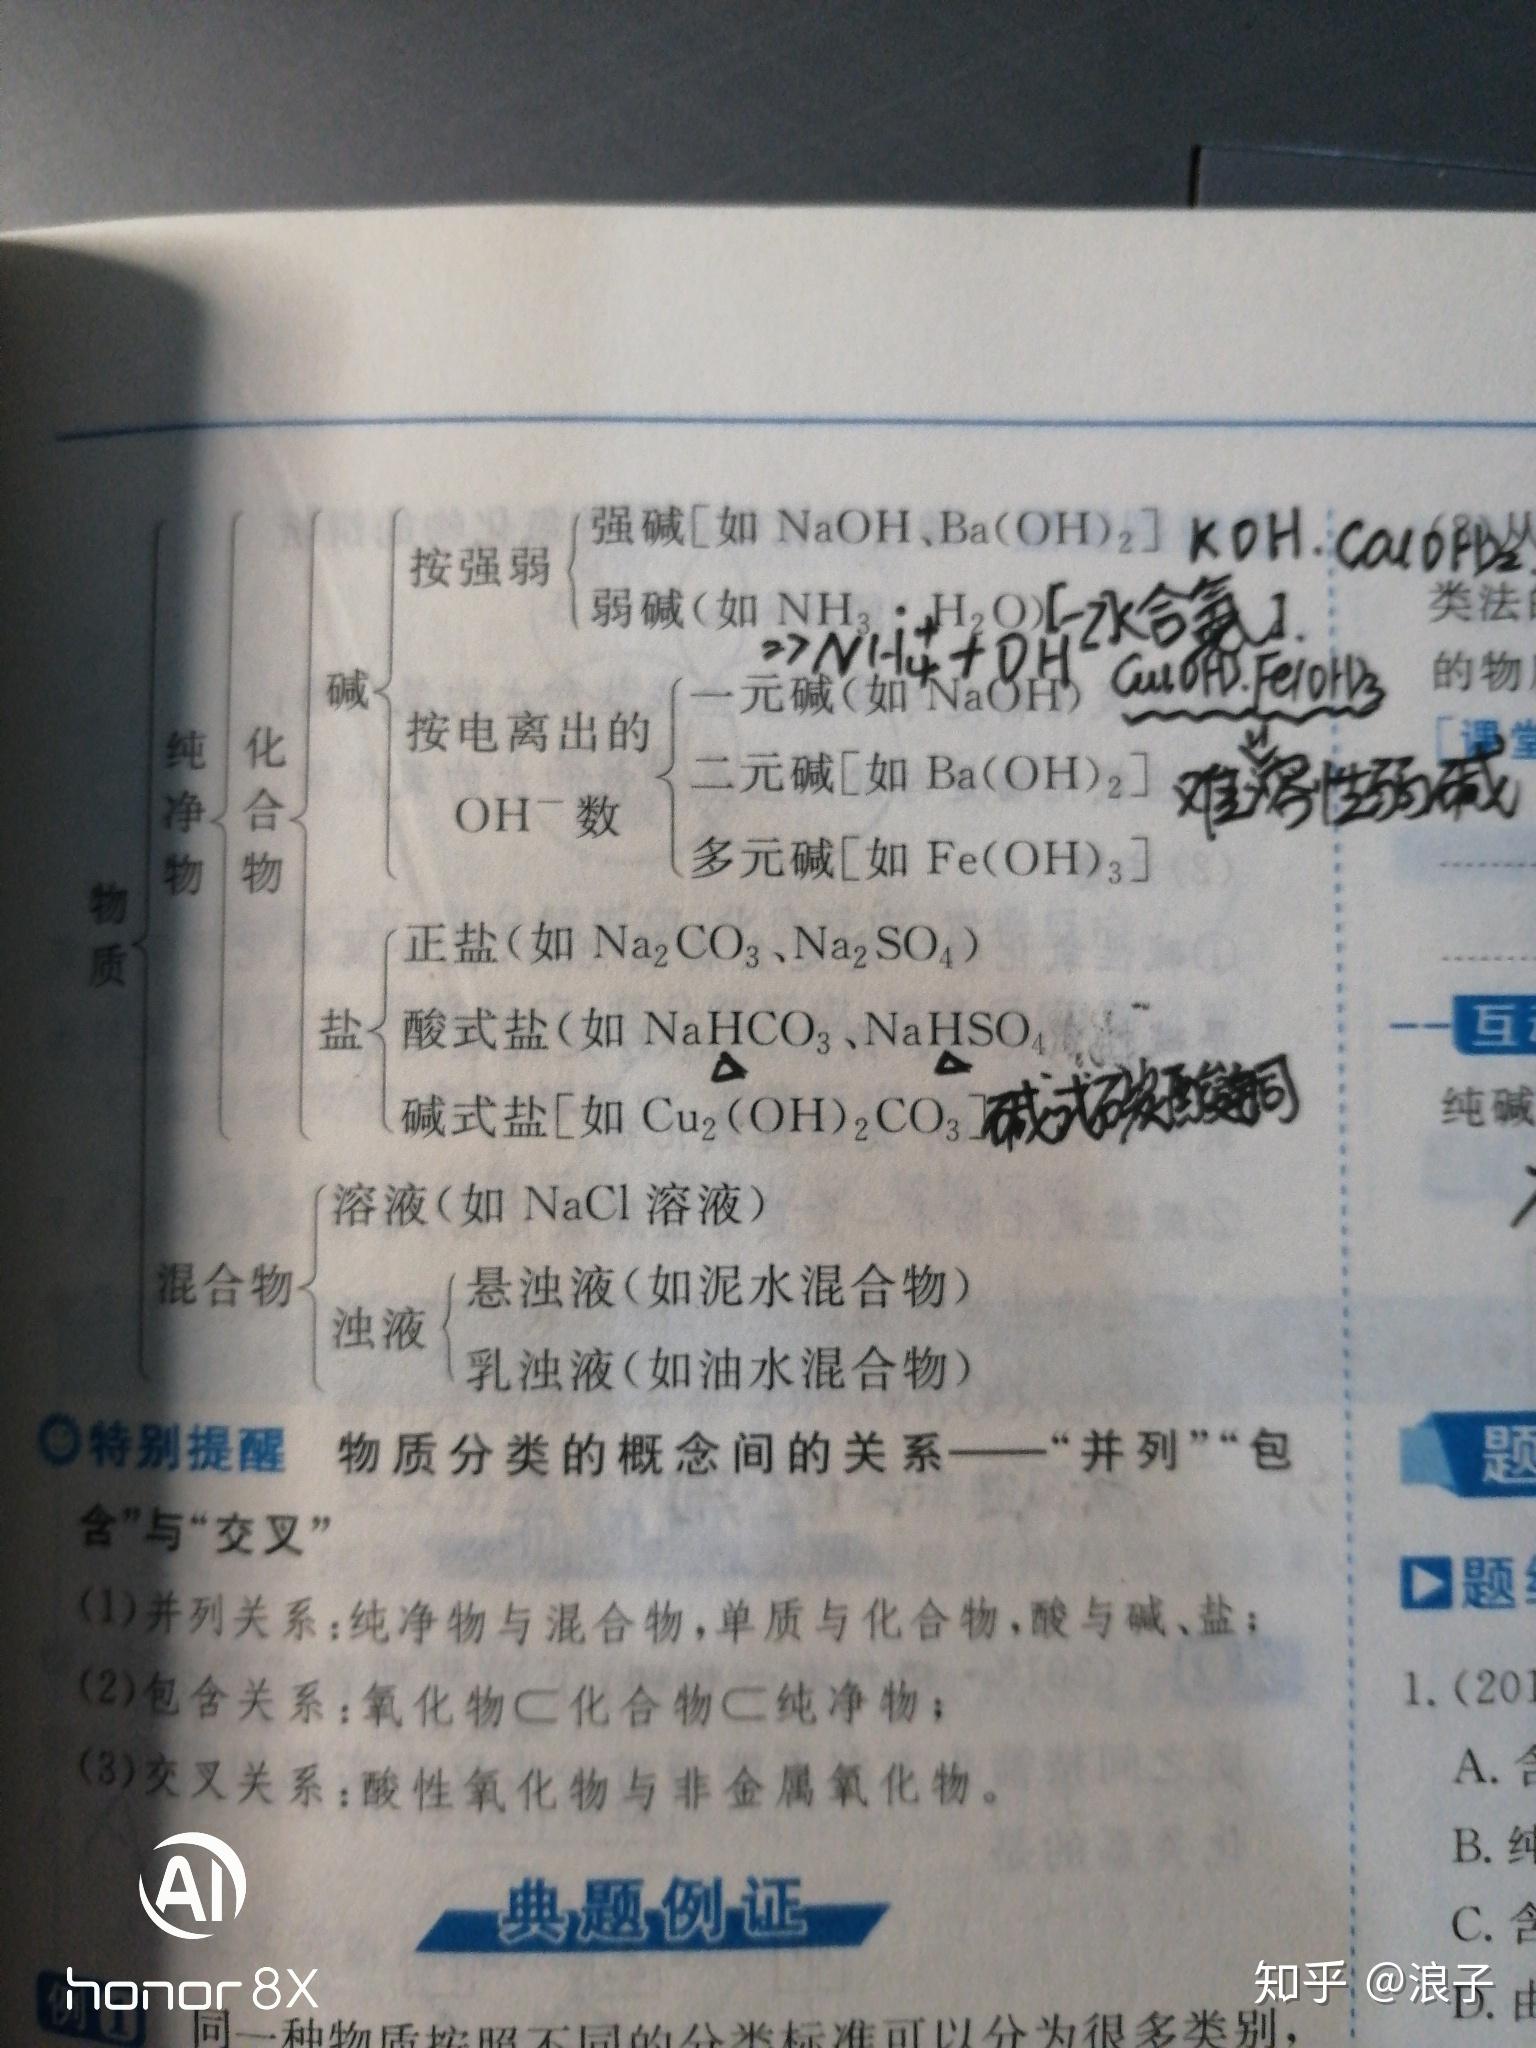 强碱[如 NaOH、Ba(OH)₂] KOH. Ca(OH)₂
按强弱
弱碱(如 NH₃·H₂O)[一水合氨].
⇌NH₄⁺+OH⁻
碱
一元碱(如 NaOH) Cu(OH)₂.Fe(OH)₃
按电离出的
OH⁻数
二元碱[如 Ba(OH)₂] 难溶性弱碱
多元碱[如 Fe(OH)₃]
纯净物
化合物
物质
正盐(如 Na₂CO₃、Na₂SO₄)
盐
酸式盐(如 NaHCO₃、NaHSO₄
碱式盐[如 Cu₂(OH)₂CO₃] 碱式碳酸铜
溶液(如 NaCl 溶液)
混合物
悬浊液(如泥水混合物)
浊液
乳浊液(如油水混合物)
特别提醒 物质分类的概念间的关系——“并列”“包
含”与“交叉”
(1)并列关系:纯净物与混合物,单质与化合物,酸与碱、盐;
(2)包含关系:氧化物⊂化合物⊂纯净物;
(3)交叉关系:酸性氧化物与非金属氧化物。
典题例证
例1 同一种物质按照不同的分类标准可以分为很多类别,
类法的
的物
[课堂
互动
纯碱
题
题组
1.(201
A. 含
B. 纯
C. 含
D. 由
AI
honor 8X
知乎 @浪子